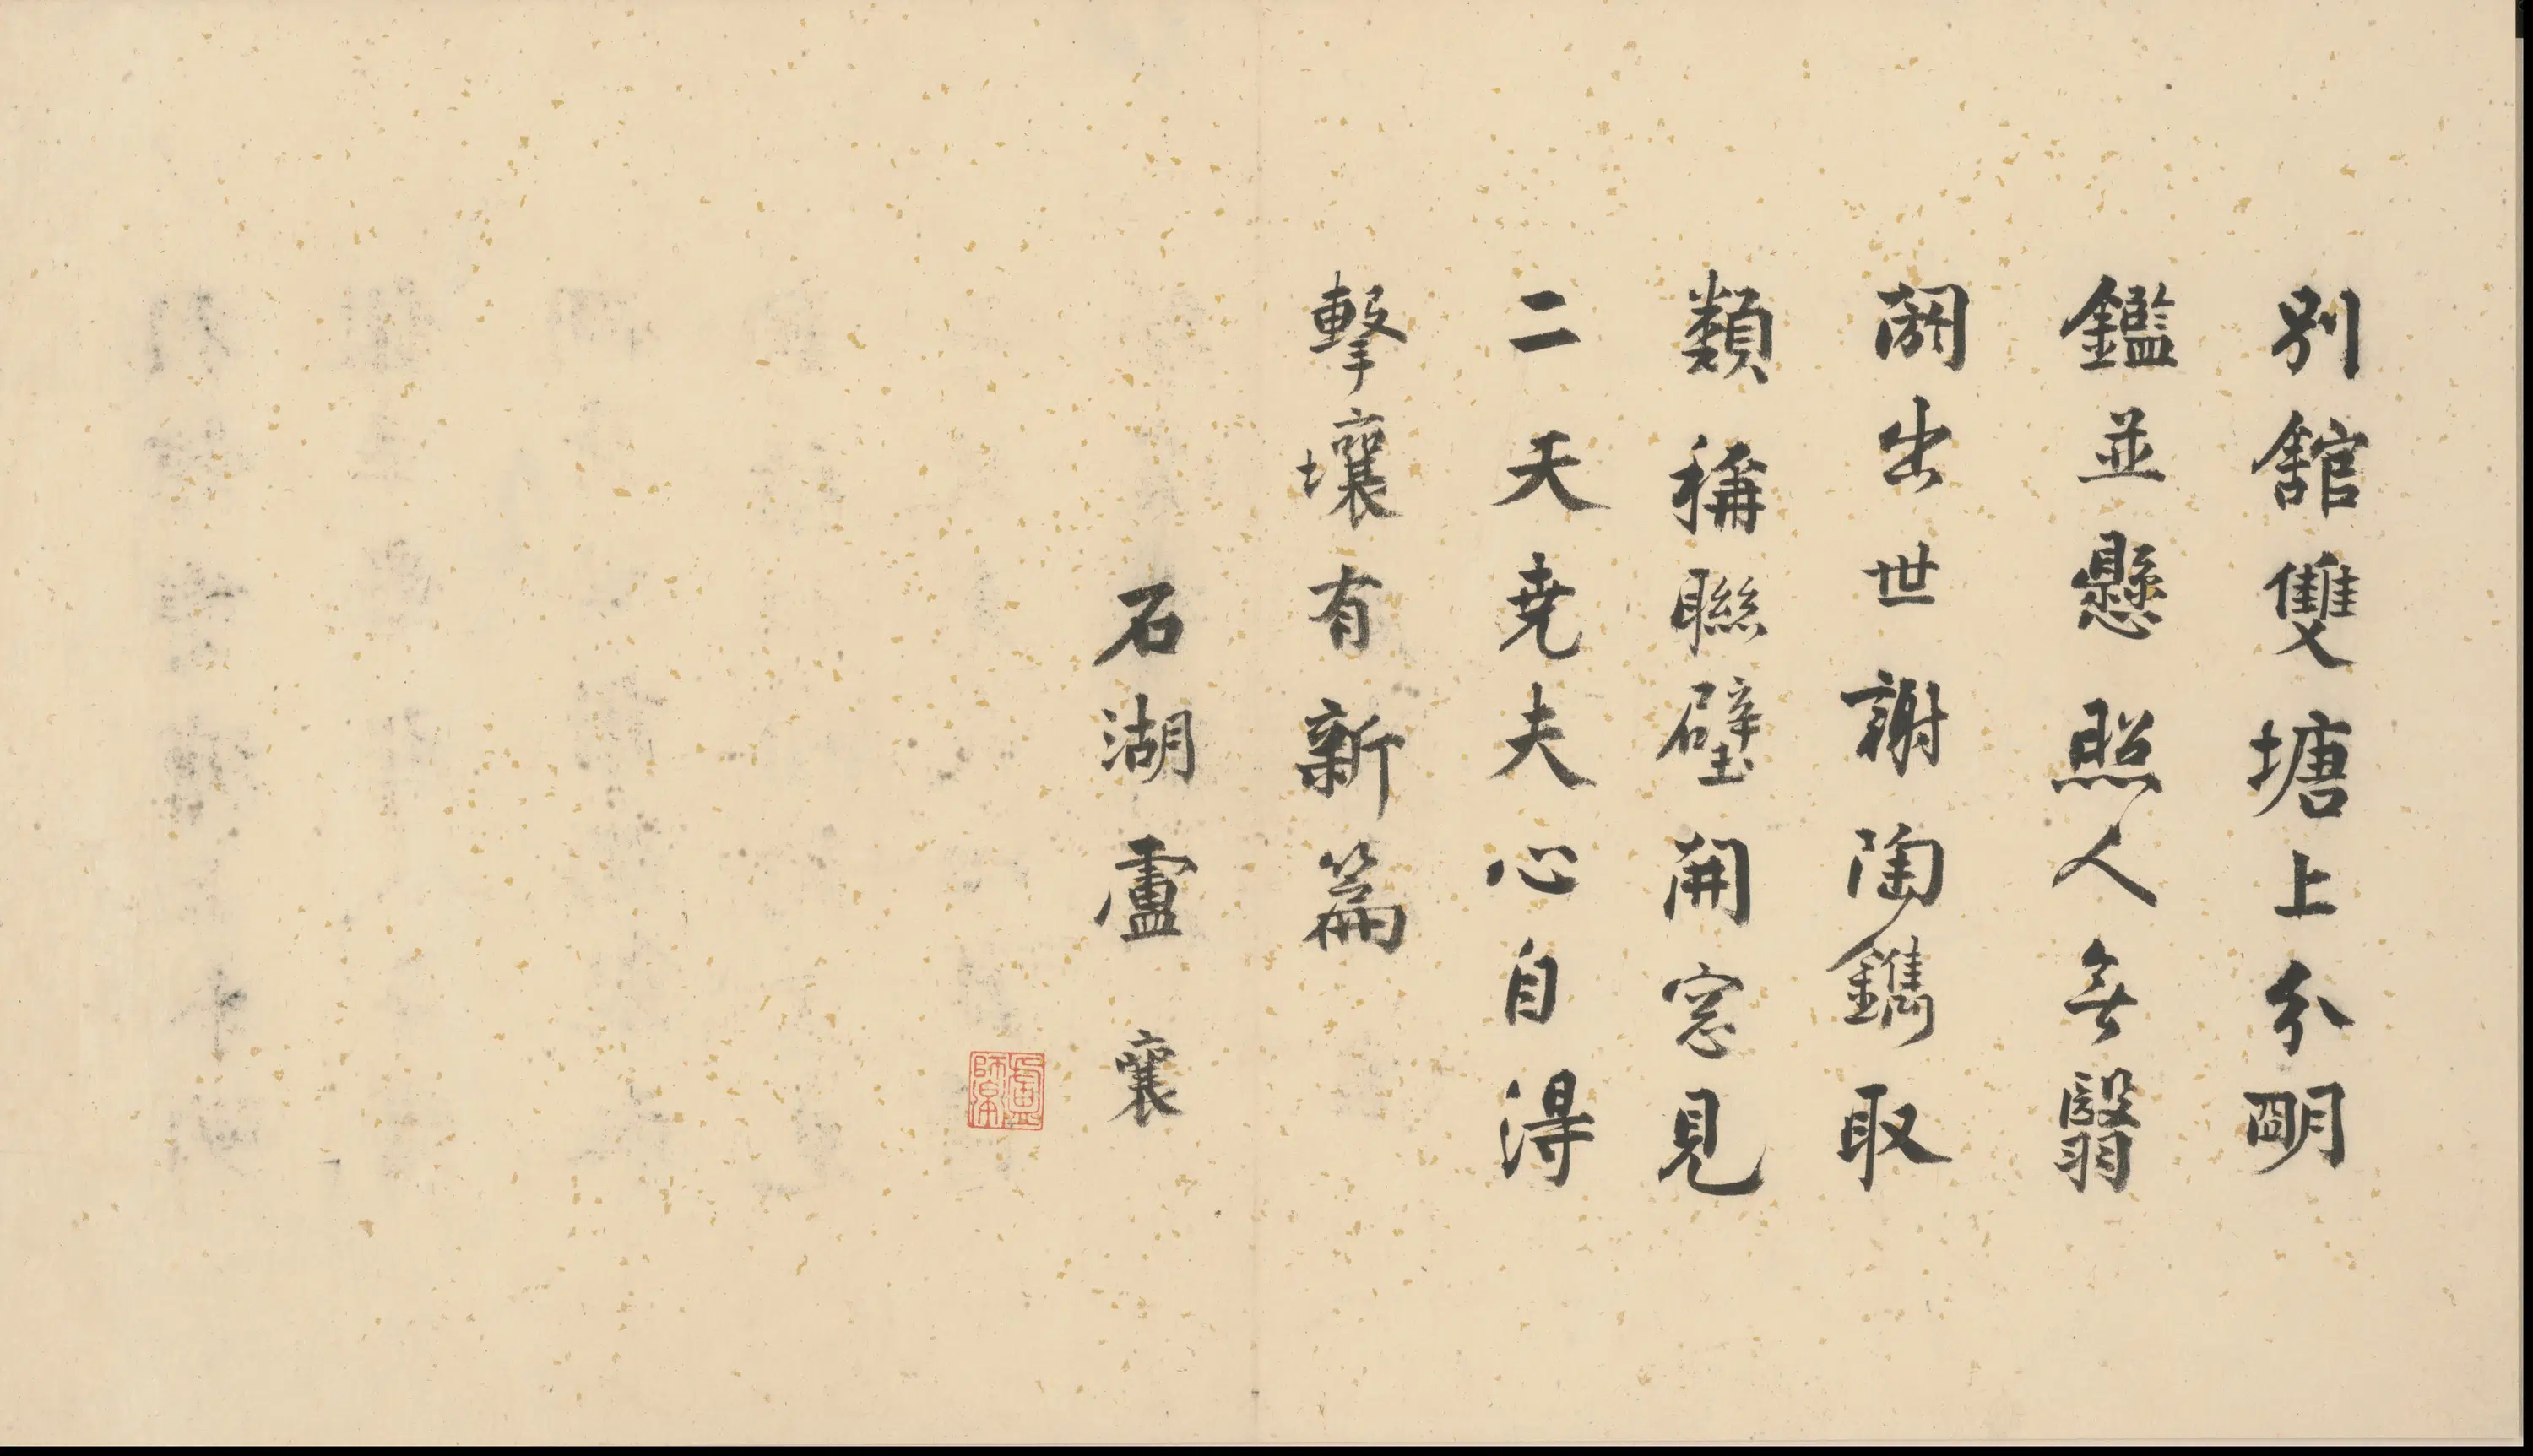 別舘雙塘上分明
鑑並懸照人無翳
闕出世謝陶鐫取
類稱聯璧開窓見
二天尭夫心自得
擊壤有新篇
石湖盧襄
盧師陳